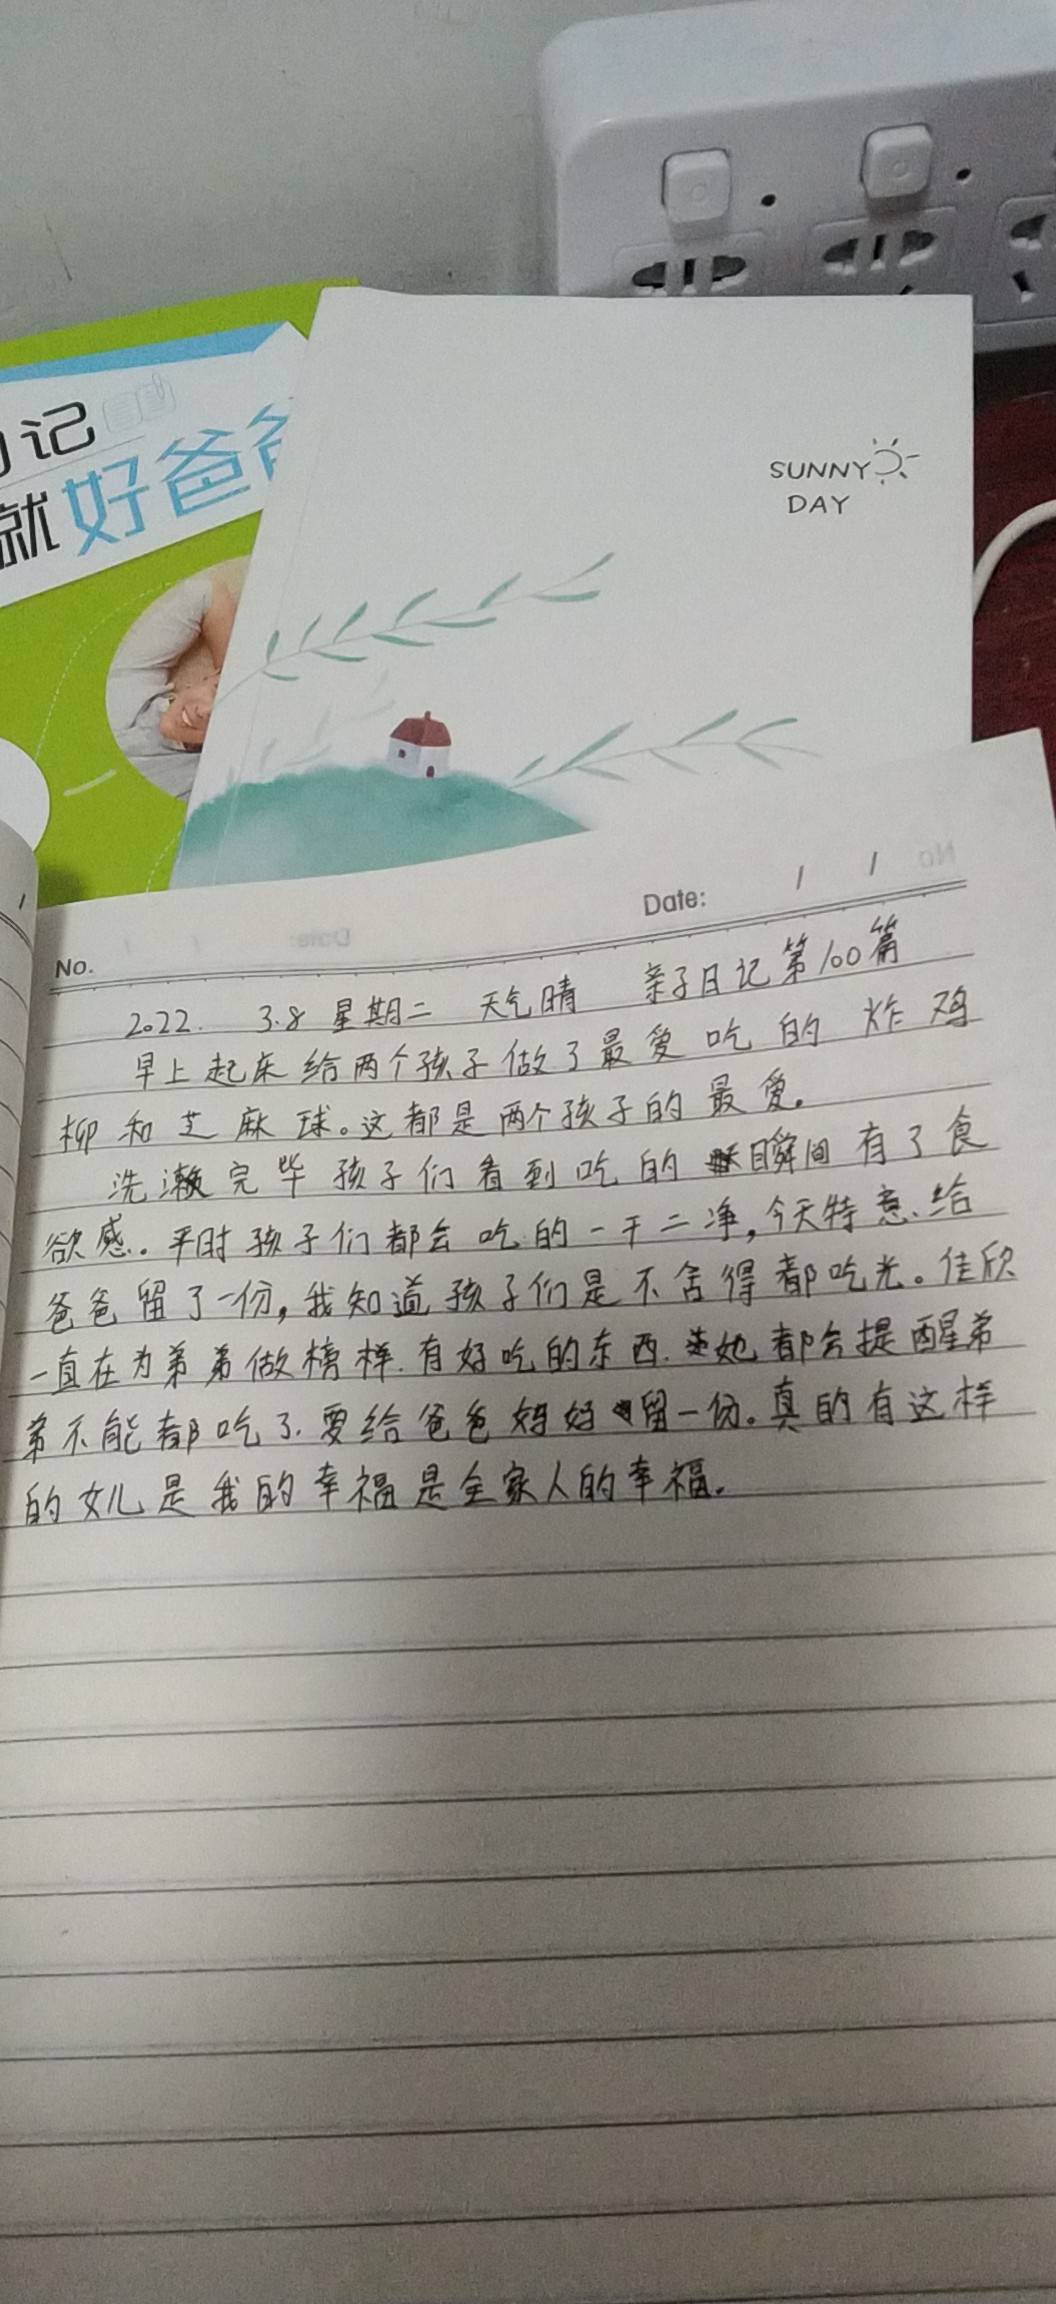 记
就好爸爸
SUNNY
DAY
Date: / /
No.
2022. 3.8 星期二 天气晴 亲子日记第100篇
早上起床给两个孩子做了最爱吃的炸鸡
柳和芝麻球。这都是两个孩子的最爱。
洗漱完毕孩子们看到吃的瞬间有了食
欲感。平时孩子们都会吃的一干二净,今天特意给
爸爸留了一份,我知道孩子们是不舍得都吃光。佳欣
一直在为弟弟做榜样.有好吃的东西.她都会提醒弟
弟不能都吃了.要给爸爸妈妈留一份。真的有这样
的女儿是我的幸福是全家人的幸福.